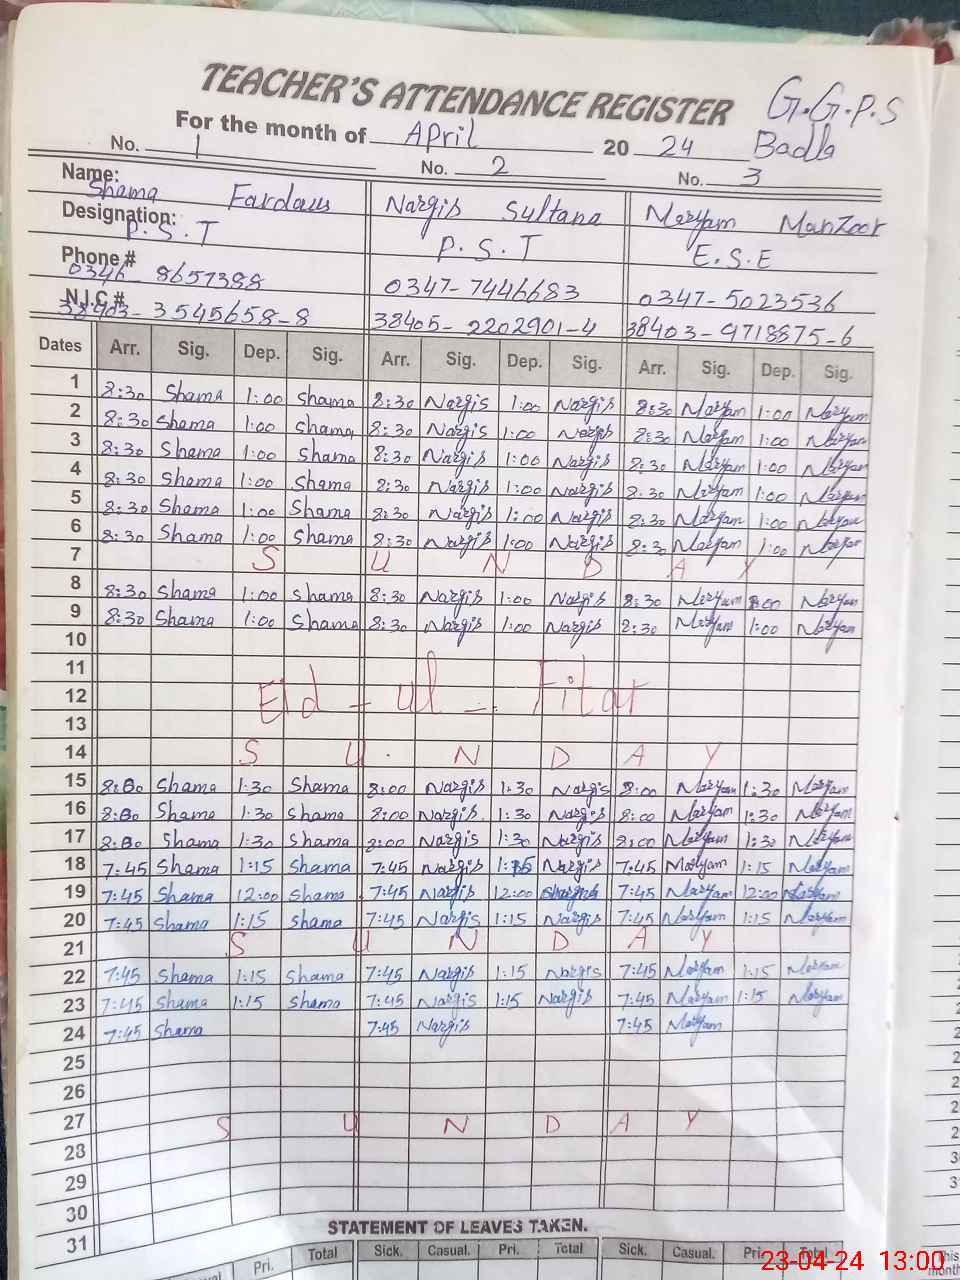 TEACHER'S ATTENDANCE REGISTER G.G.P.S
For the month of April 2024 Badla
No. 1 No. 2 No. 3
Name: Shama Fardaus Nargis Sultana Maryam Manzoor
Designation: P.S.T P.S.T E.S.E
Phone # 0346-8657388 0347-7446683 0347-5023536
N.I.C.# 38403-3545658-8 38405-2202901-4 38403-9718875-6
Dates Arr. Sig. Dep. Sig. Arr. Sig. Dep. Sig. Arr. Sig. Dep. Sig.
1 8:30 Shama 1:00 Shama 8:30 Nargis 1:00 Nargis 8:30 Maryam 1:00 Maryam
2 8:30 Shama 1:00 Shama 8:30 Nargis 1:00 Nargis 8:30 Maryam 1:00 Maryam
3 8:30 Shama 1:00 Shama 8:30 Nargis 1:00 Nargis 8:30 Maryam 1:00 Maryam
4 8:30 Shama 1:00 Shama 8:30 Nargis 1:00 Nargis 8:30 Maryam 1:00 Maryam
5 8:30 Shama 1:00 Shama 8:30 Nargis 1:00 Nargis 8:30 Maryam 1:00 Maryam
6 8:30 Shama 1:00 Shama 8:30 Nargis 1:00 Nargis 8:30 Maryam 1:00 Maryam
7 S U N D A Y
8 8:30 Shama 1:00 Shama 8:30 Nargis 1:00 Nargis 8:30 Maryam 1:00 Maryam
9 8:30 Shama 1:00 Shama 8:30 Nargis 1:00 Nargis 8:30 Maryam 1:00 Maryam
10
11
12 Eid - ul - Fitar
13
14 S U N D A Y
15 8:00 Shama 1:30 Shama 8:00 Nargis 1:30 Nargis 8:00 Maryam 1:30 Maryam
16 8:00 Shama 1:30 Shama 8:00 Nargis 1:30 Nargis 8:00 Maryam 1:30 Maryam
17 8:00 Shama 1:30 Shama 8:00 Nargis 1:30 Nargis 8:00 Maryam 1:30 Maryam
18 7:45 Shama 1:15 Shama 7:45 Nargis 1:15 Nargis 7:45 Maryam 1:15 Maryam
19 7:45 Shama 12:00 Shama 7:45 Nargis 12:00 Nargis 7:45 Maryam 12:00 Maryam
20 7:45 Shama 1:15 Shama 7:45 Nargis 1:15 Nargis 7:45 Maryam 1:15 Maryam
21 S U N D A Y
22 7:45 Shama 1:15 Shama 7:45 Nargis 1:15 Nargis 7:45 Maryam 1:15 Maryam
23 7:45 Shama 1:15 Shama 7:45 Nargis 1:15 Nargis 7:45 Maryam 1:15 Maryam
24 7:45 Shama 7:45 Nargis 7:45 Maryam
25
26
27 S U N D A Y
28
29
30
31
STATEMENT OF LEAVES TAKEN.
Pri. Total Sick. Casual. Pri. Total Sick. Casual. Pri. Total
23-04-24 13:00